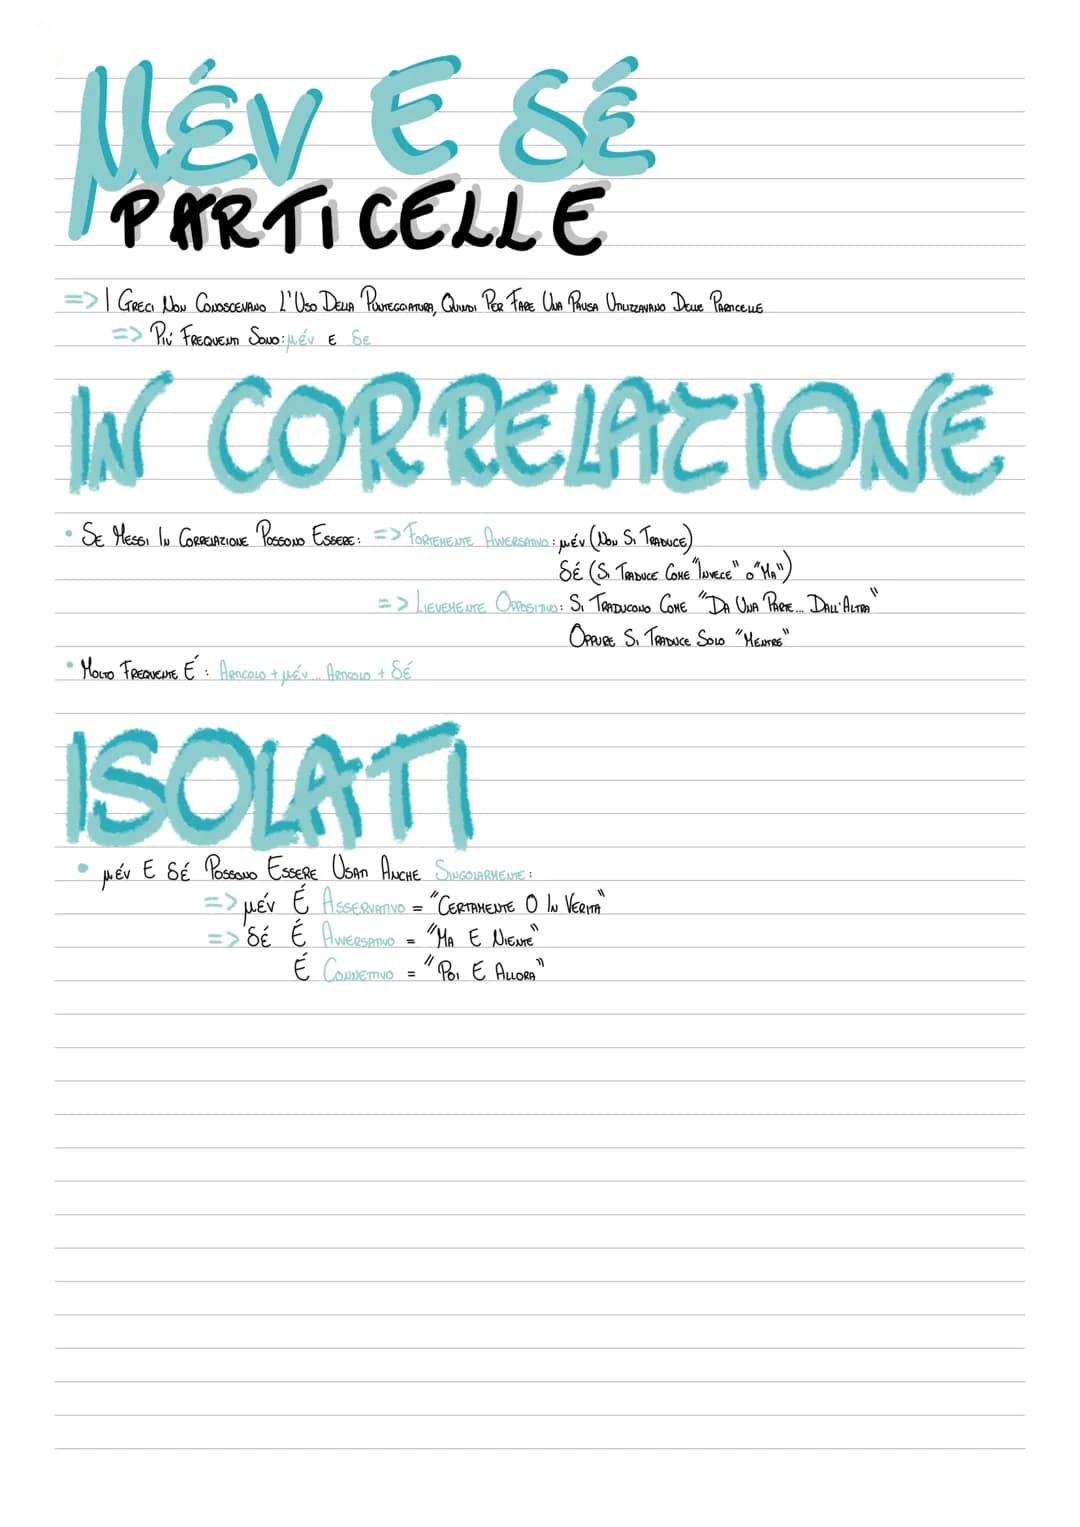 μέν E δέ
PARTICELLE
=> I GRECI NON CONOSCEVANO L'USO DELLA PUNTEGGIATURA, QUINDI PER FARE UNA PAUSA UTILIZZAVANO DELLE PARTICELLE
=> PIÚ FREQUENTI SONO: μέν E δε
IN CORRELAZIONE
• SE MESSI IN CORRELAZIONE POSSONO ESSERE: => FORTEMENTE AVVERSATIVO: μέν (NON SI TRADUCE)
δέ (SI TRADUCE COME "INVECE" O "MA")
=> LIEVEMENTE OPPOSITIVO: SI TRADUCONO COME "DA UNA PARTE... DALL'ALTRA"
OPPURE SI TRADUCE SOLO "MENTRE"
• MOLTO FREQUENTE É: ARTICOLO + μέν... ARTICOLO + δέ
ISOLATI
• μέν E δέ POSSONO ESSERE USATI ANCHE SINGOLARMENTE:
=> μέν É ASSERVATIVO = "CERTAMENTE O IN VERITÀ"
=> δέ É AVVERSATIVO = "MA E NIENTE"
É CONNETTIVO = "POI E ALLORA"